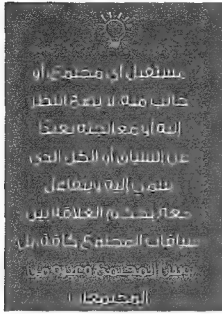 مستقبل أي مجتمع، أو
جانب منه، لا يصح النظر
إليه أو معالجته بعيدًا
عن السياق أو الكل الذي
ينتمي إليه ويتفاعل
معه، بحكم العلاقة بين
سياقات المجتمع كافة، بل
وبين المجتمع وغيره من
المجتمعات